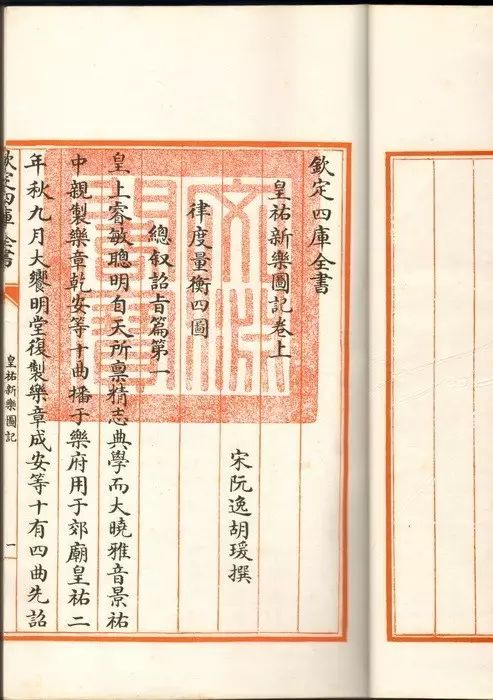 欽定四庫全書
皇祐新樂圖記卷上
宋阮逸胡瑗撰
律度量衡四圖
總叙詔㫖篇第一
皇上睿敏聰明自天所禀精志典學而大曉雅音景祐
中親製樂章乾安等十曲播于樂府用于郊廟皇祐二
年秋九月大饗明堂復製樂章成安等十有四曲先詔
欽定四庫全書
皇祐新樂圖記
一
文淵閣寶